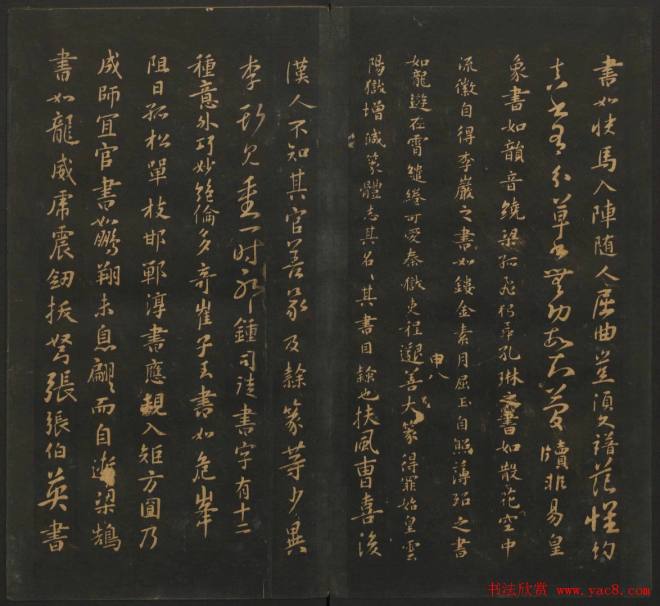 書如快馬入陣随人屈曲豈須文譜范懷約
真書有分草書無功故知簡牘非易皇
象書如韻音繞梁孤飛獨舞孔琳之書如散花空中
流徽自得李巖之書如鏤金素月屈玉自照薄紹之書
如龍遊在霄繾綣可愛秦獄吏程邈善大篆得罪始皇雲
陽獄增減篆體去其名其書曰隸也扶風曹喜後
申八
漢人不知其官善篆及隸篆等少異
李斯見重一时
鍾司徒書字有十二
種意外巧妙絕倫多奇崔子玉書如危峯
阻日孤松單枝邯鄲淳書應規入矩方圓乃
成師宜官書如鵬翔未息翩而自逝梁鵠
書如龍威虎震劒拔弩張張伯英書
书法欣赏 →www.yac8.com